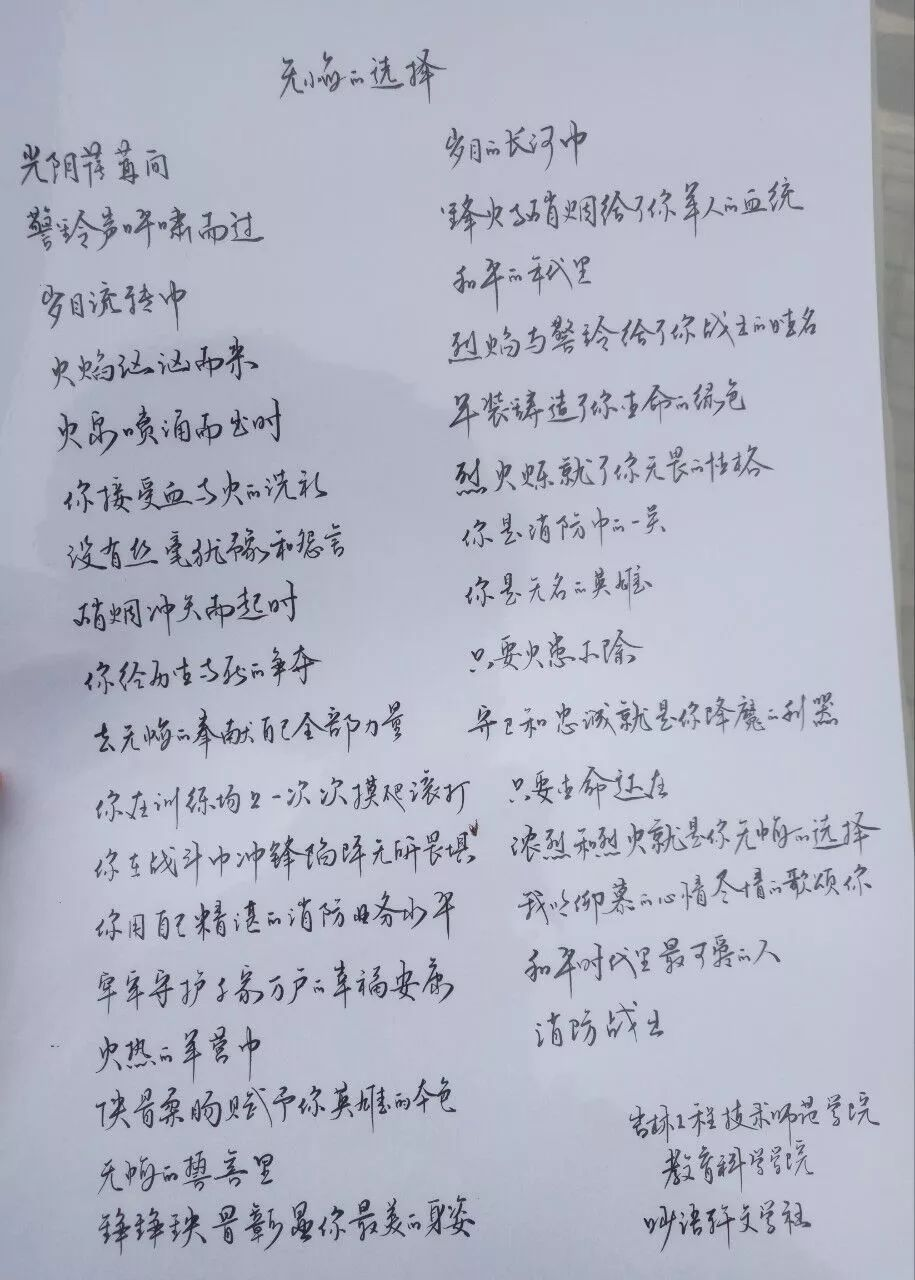 无悔的选择
光阴荏苒间
警铃声呼啸而过
岁月流转中
火焰汹汹而来
火泉喷涌而出时
你接受血与火的洗礼
没有丝毫犹豫和怨言
硝烟冲天而起时
你给为生与死的争夺
去无悔的奉献自己全部力量
你在训练场上一次次摸爬滚打
你在战斗中冲锋陷阵无所畏惧
你用自己精湛的消防业务水平
牢牢守护千家万户的幸福安康
火热的军营中
侠骨柔肠赋予你英雄的本色
无悔的誓言里
铮铮铁骨彰显你最美的身姿
岁月的长河中
烽火与硝烟给了你军人的血统
和平的年代里
烈焰与警铃给了你战士的姓名
军装铸造了你生命的绿色
烈火炼就了你无畏的性格
你是消防中的一员
你是无名的英雄
只要火患不除
守卫和忠诚就是你降魔的利器
只要生命还在
浓烈和烈火就是你无悔的选择
我以仰慕的心情尽情的歌颂你
和平时代里最可爱的人
消防战士
吉林工程技术师范学院
教育科学学院
吵语轩文学社